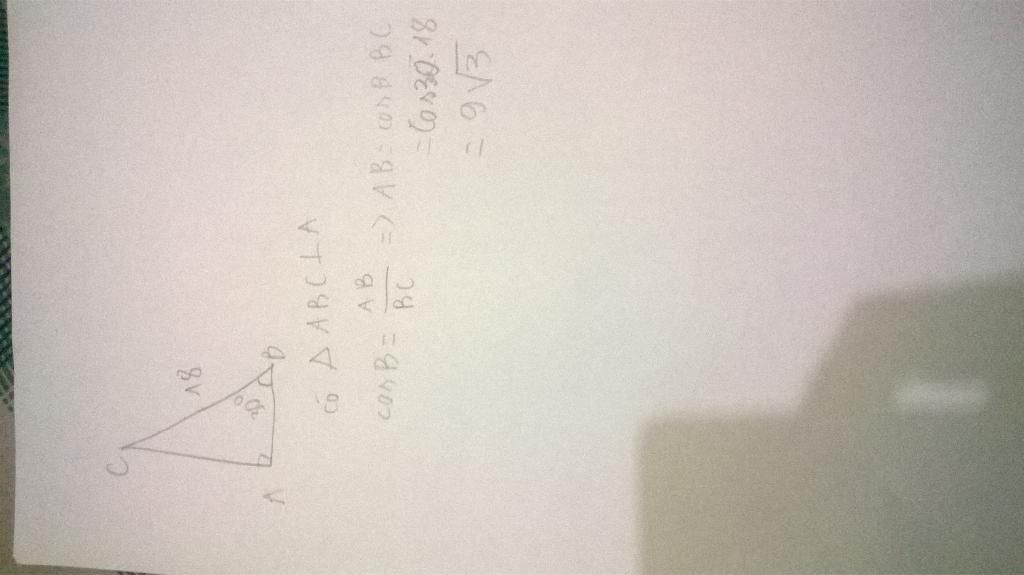 C
18
30°
A B
có △ABC⊥A
cosB = AB/BC => AB = cosB BC
= Cos30.18
= 9√3